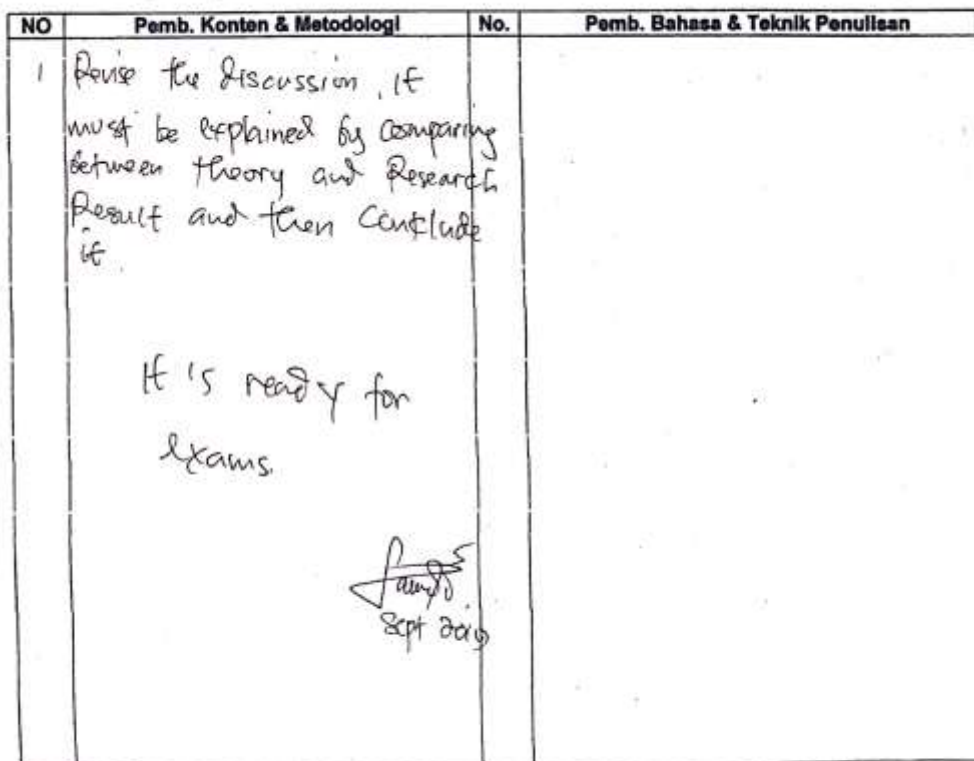 NO Pemb. Konten & Metodologi No. Pemb. Bahasa & Teknik Penulisan
1 Revise the discussion, it
must be explained by comparing
between theory and Research
Result and then Conclude
it.
It is ready for
exams.
Sept 2019